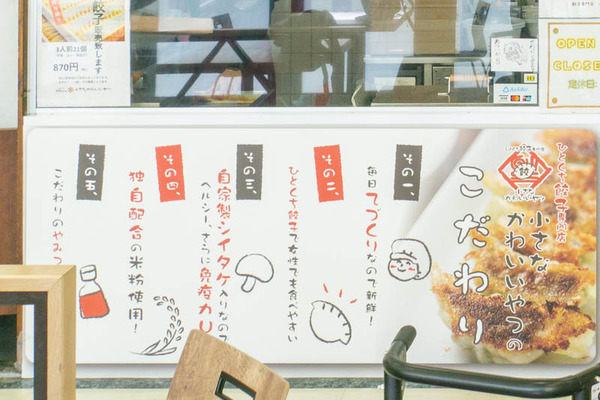 餃子
販売致します
3人前21個
870円
OPEN
CLOSE
定休日:
ひとくち餃子専門店
小さな
かわいいやつの
こだわり
その一、
毎日てづくりなので新鮮!
その二、
ひとくち餃子で女性でも食べやすい
その三、
自家製シイタケ入りなので
ヘルシー、さらに免疫力U
その四、
独自配合の米粉使用!
その五、
こだわりのやみつ